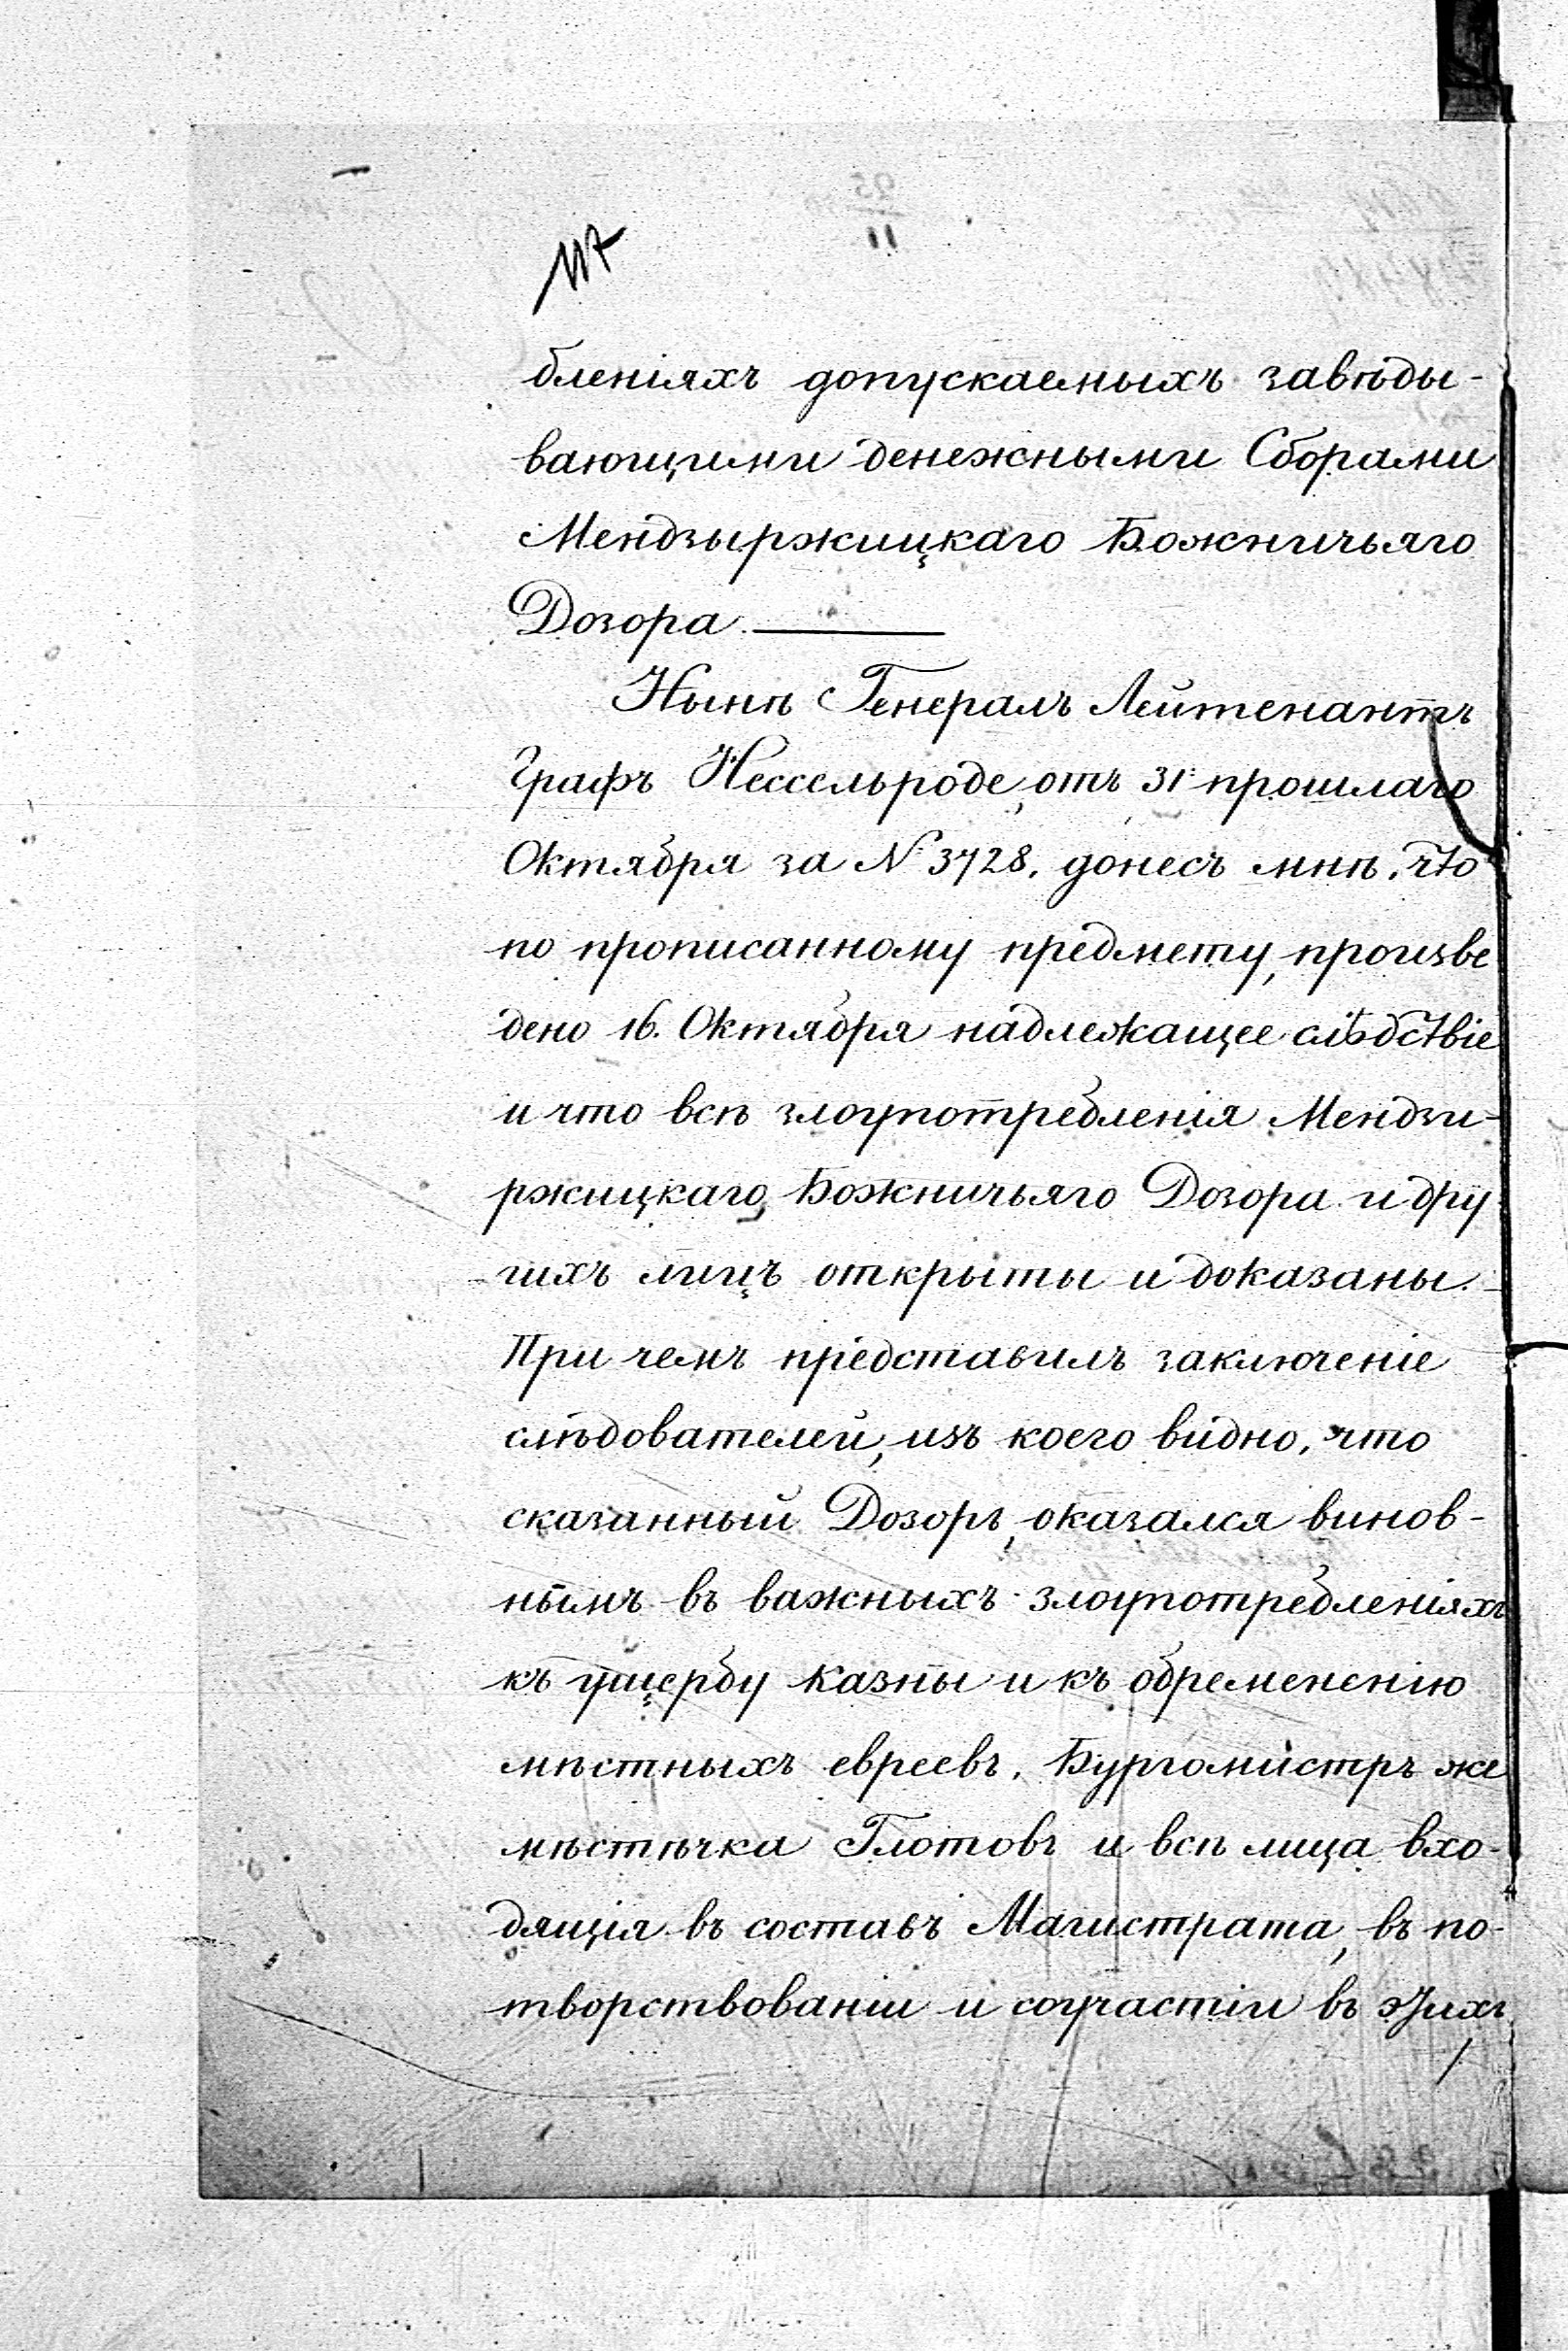 117
бленіяхъ допускаемыхъ завѣды-
вающими денежными Сборами
Мендзыржицкаго Божничьяго
Дозора.
Нынѣ Генералъ Лейтенантъ
Графъ Нессельроде, отъ 31. прошлаго
Октября за № 3728. донесъ мнѣ, что
по прописанному предмету, произве
дено 16. Октября надлежащее слѣдствіе
и что всѣ злоупотребленія Мендзи-
ржицкаго Божничьяго Дозора и дру-
гихъ лицъ открыты и доказаны.-
При чемъ представилъ заключеніе
слѣдователей, изъ коего видно, что
сказанный Дозоръ, оказался винов-
нымъ въ важныхъ злоупотребленіяхъ
къ ущербу казны и къ обремененію
мѣстныхъ евреевъ. Бургомистръ же
мѣстѣчка Глотовъ и всѣ лица вхо-
дящія въ составъ Магистрата, въ по-
творствованіи и соучастіи въ этихъ